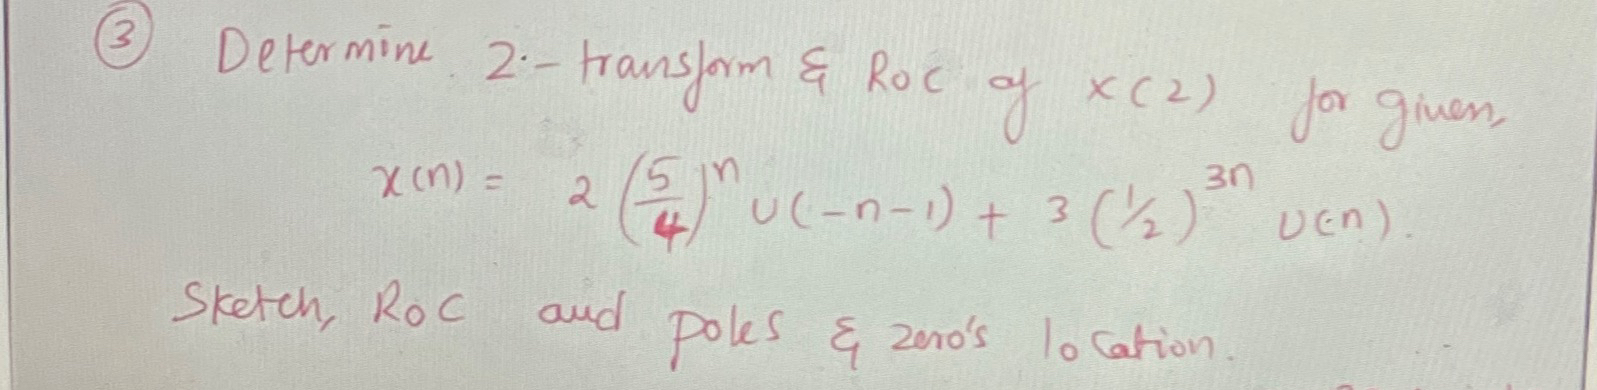 ③ Determine Z-transform & ROC of X(Z) for given,
x(n) = 2 (5/4)^n u(-n-1) + 3 (1/2)^3n u(n).
Sketch, ROC and poles & zero's location.